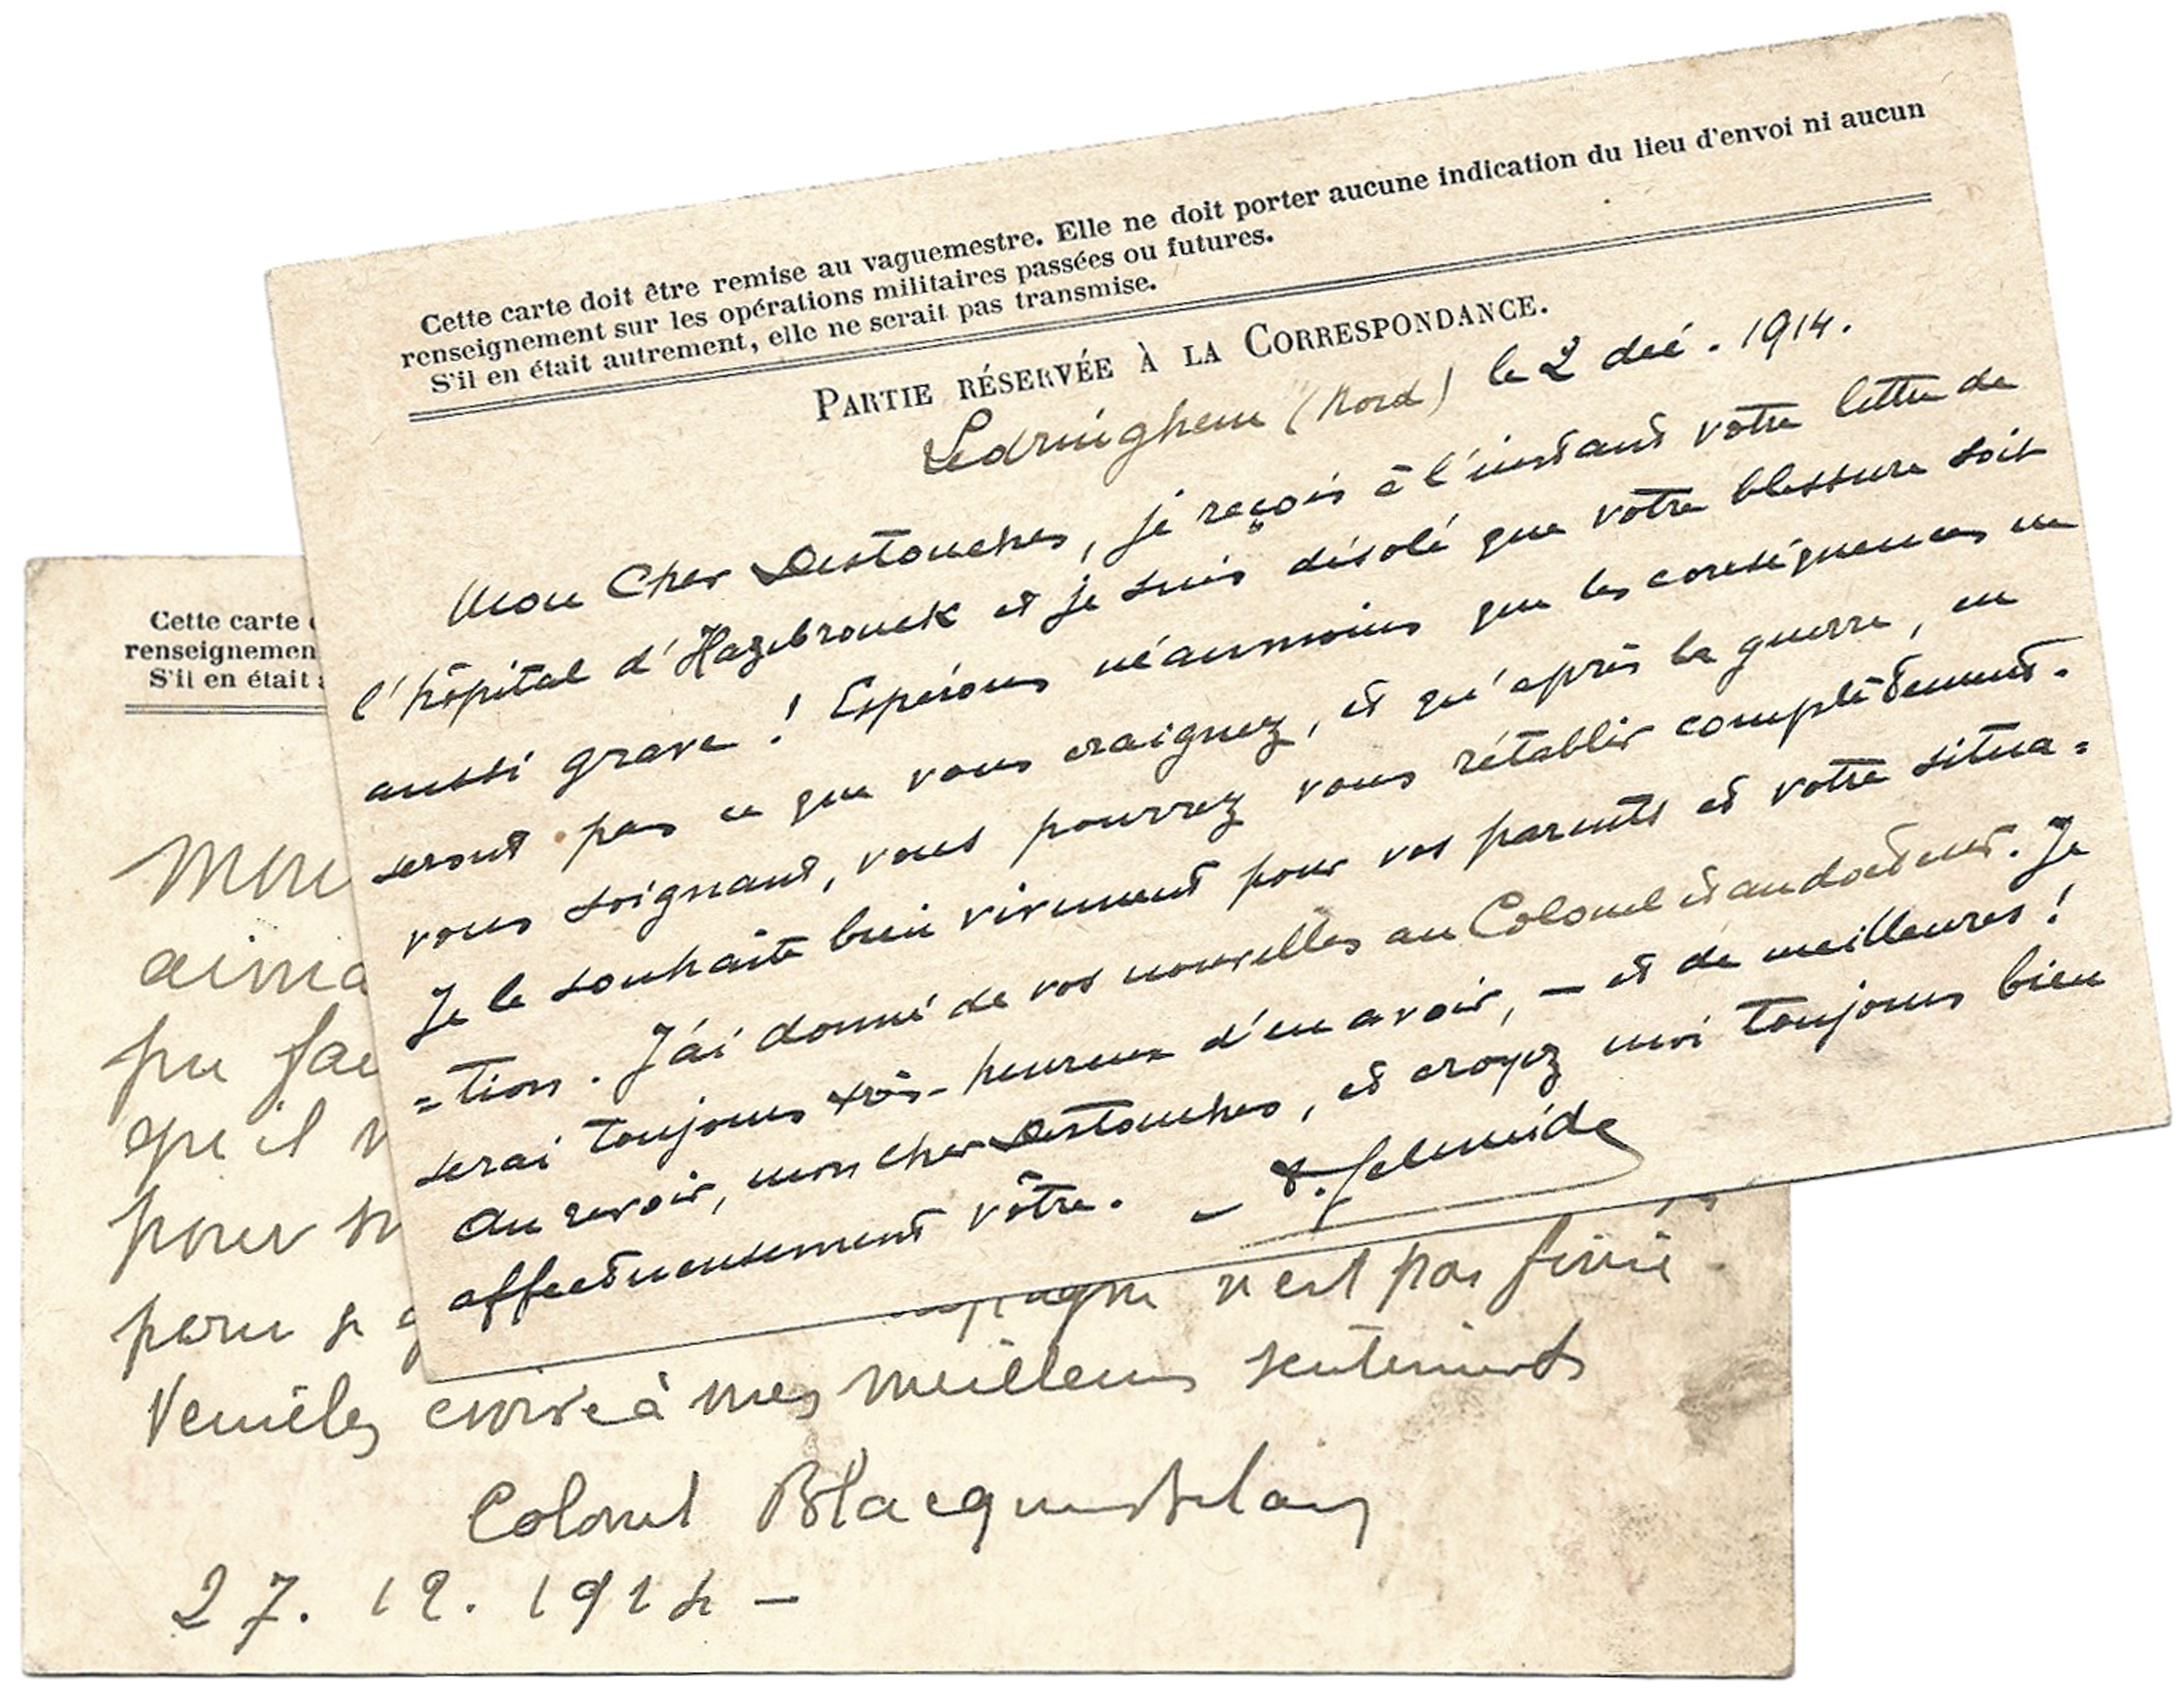 Cette carte doit être remise au vaguemestre. Elle ne doit porter aucune indication du lieu d'envoi ni aucun
renseignement sur les opérations militaires passées ou futures.
S'il en était autrement, elle ne serait pas transmise.
PARTIE RÉSERVÉE À LA CORRESPONDANCE.
Ledringhem (Nord) le 2 déc. 1914.
Mon Cher Destouches, je reçois à l'instant votre lettre de
l'hôpital d'Hazebrouck et je suis désolé que votre blessure soit
aussi grave ! Espérons néanmoins que les conséquences ne
seront pas ce que vous craignez, et qu'après la guerre, en
vous soignant, vous pourrez vous rétablir complètement.
Je le souhaite bien vivement pour vos parents et votre situa=
=tion. J'ai donné de vos nouvelles au Colonel et au docteur. Je
serai toujours très-heureux d'en avoir, — et de meilleures !
Au revoir, mon cher Destouches, et croyez moi toujours bien
affectueusement vôtre. — Schneider
Cette carte
renseignemen
S'il en était
Mon
aima
pu fai
qu'il v
pour
n'est pas finie
Veuillez croire à mes meilleurs sentiments
Colonel Blacquebelair
27. 12. 1914 —